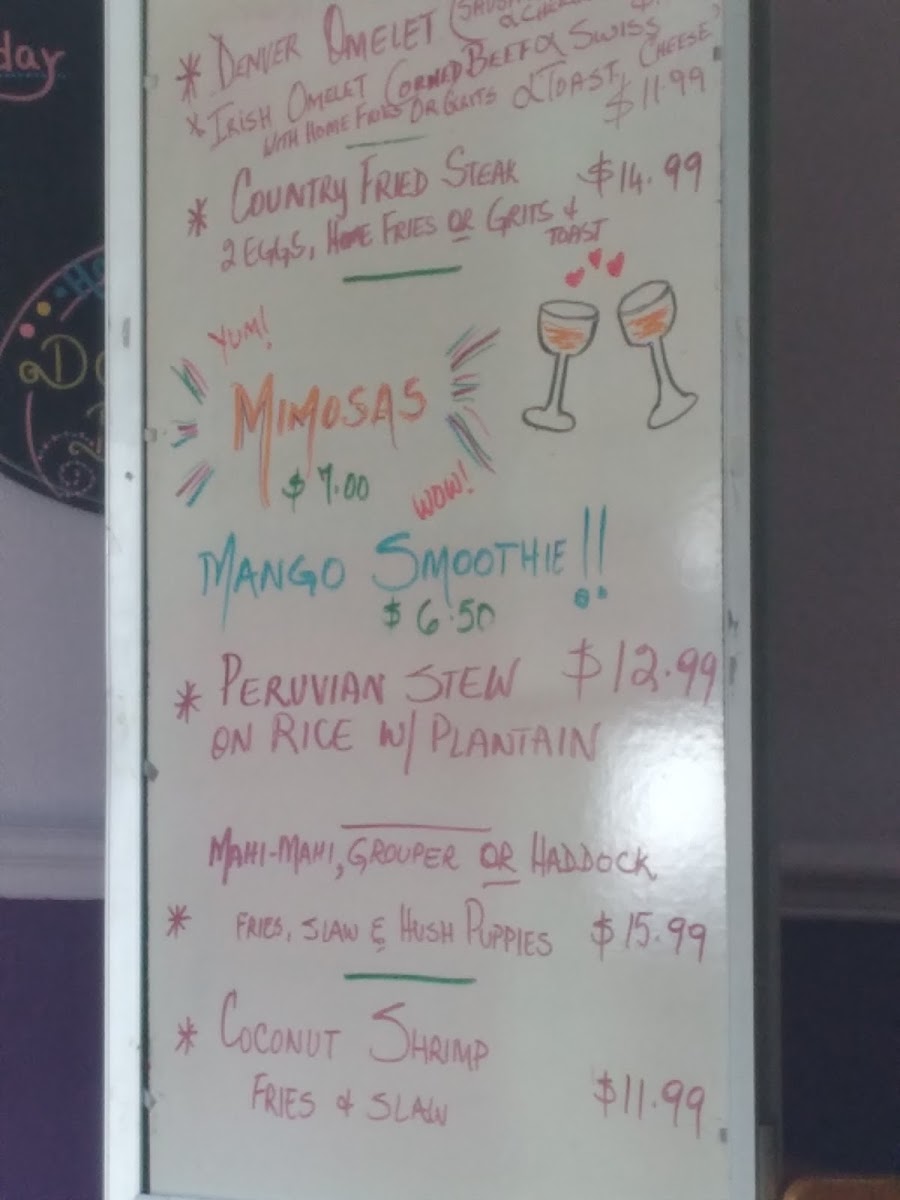 day
* DENVER OMELET
* IRISH OMELET (CORNED BEEF & SWISS CHEESE)
WITH HOME FRIES OR GRITS & TOAST, $11.99
* COUNTRY FRIED STEAK $14.99
2 EGGS, HOME FRIES OR GRITS &
TOAST
YUM!
MIMOSAS
$7.00
WOW!
MANGO SMOOTHIE!!
$6.50
* PERUVIAN STEW $12.99
ON RICE W/ PLANTAIN
MAHI-MAHI, GROUPER OR HADDOCK
* FRIES, SLAW & HUSH PUPPIES $15.99
* COCONUT SHRIMP
FRIES & SLAW $11.99